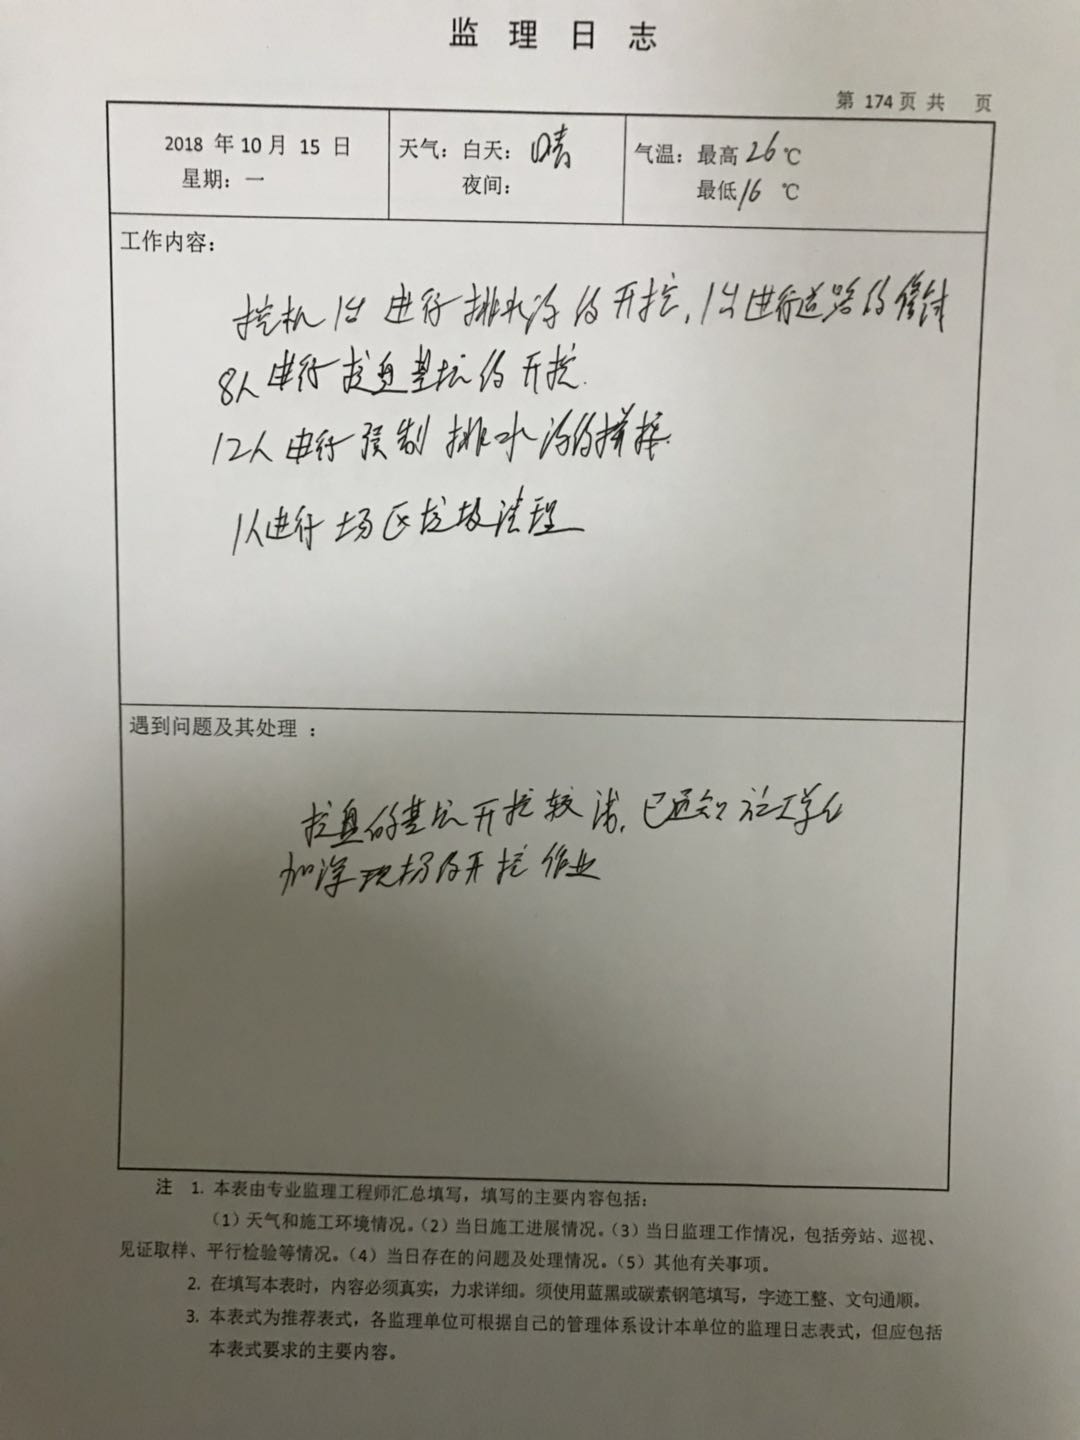 监 理 日 志
第 174 页 共 页
2018 年 10 月 15 日
星期：一
天气：白天：晴
夜间：
气温：最高 26 ℃
最低 16 ℃
工作内容：
挖机1台进行排水沟的开挖，1台进行道路的修
8人进行拉盘基坑的开挖.
12人进行预制排水沟的拼接.
1人进行场区垃圾清理
遇到问题及其处理 ：
拉盘的基坑开挖较浅，已通知施工单位
加深现场的开挖作业
注 1. 本表由专业监理工程师汇总填写，填写的主要内容包括：
（1）天气和施工环境情况。（2）当日施工进展情况。（3）当日监理工作情况，包括旁站、巡视、
见证取样、平行检验等情况。（4）当日存在的问题及处理情况。（5）其他有关事项。
2. 在填写本表时，内容必须真实，力求详细。须使用蓝黑或碳素钢笔填写，字迹工整、文句通顺。
3. 本表式为推荐表式，各监理单位可根据自己的管理体系设计本单位的监理日志表式，但应包括
本表式要求的主要内容。